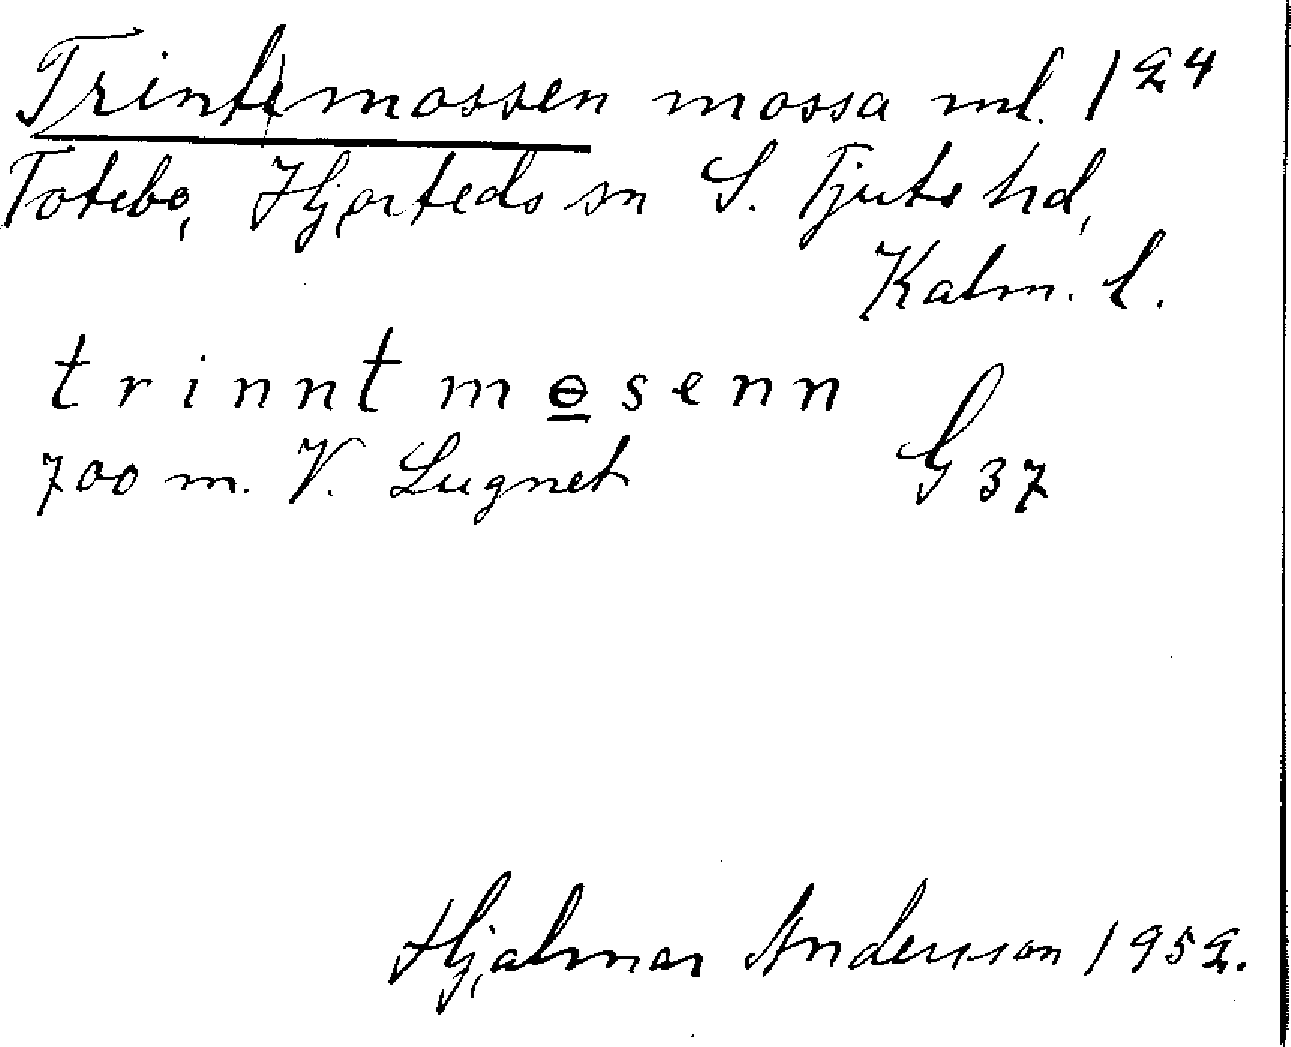 Trintemossen mossa ml. 124
Totebo, Hjorteds sn S. Tjusts hd,
Kalm. l.
trinntmɵsenn
700 m. V. Lugnet G 37
Hjalmar Andersson 1952.